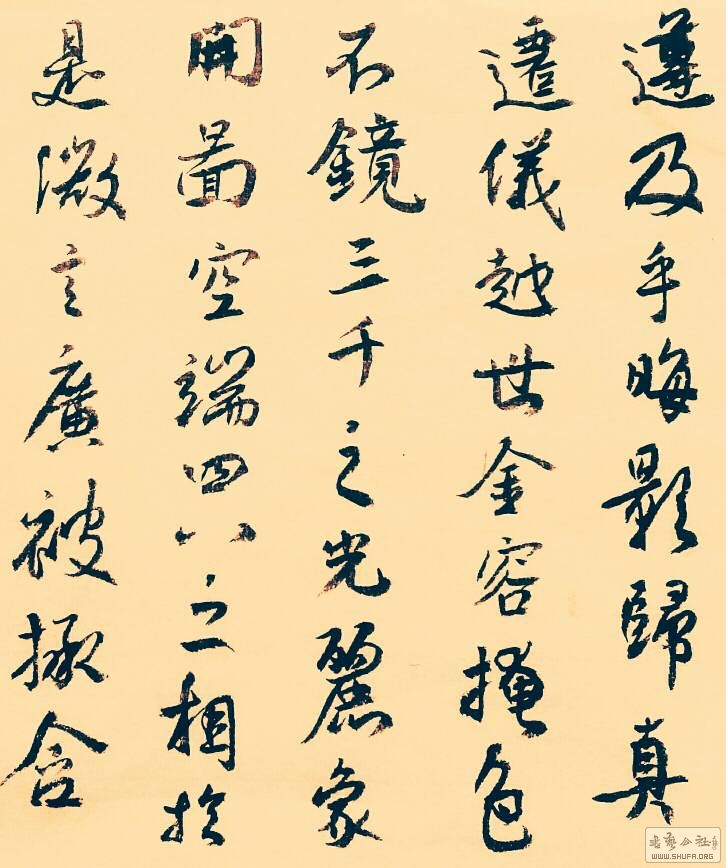 遵及乎晦影歸真
遷儀越世金容掩色
不鏡三千之光麗象
開圖空端四八之相於
是微言廣被拯含
書藝公社
WWW.SHUFA.ORG